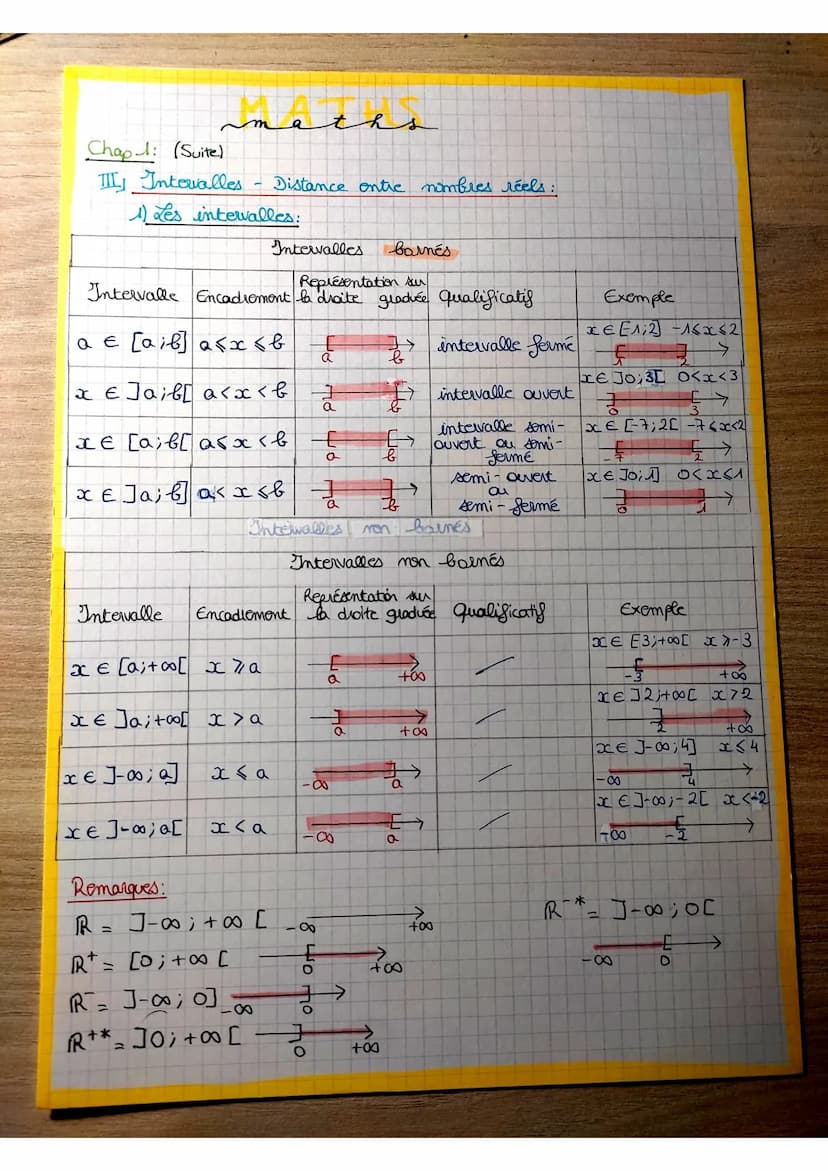 MATHS
maths
Chap 1: (Suite)
III) Intervalles - Distance entre nombres réels:
1) Les intervalles:
Intervalles bornés
Intervalle Encadrement Représentation sur la droite graduée Qualificatif Exemple
a ∈ [a;b] a⩽x⩽b a b intervalle fermé x∈[-1;2] -1⩽x⩽2 -1 2
x ∈ ]a;b[ a<x<b a b intervalle ouvert x∈ ]0;3[ 0<x<3 0 3
x∈ [a;b[ a⩽x<b a b intervalle semi-ouvert ou semi-fermé x∈ [-7;2[ -7⩽x<2 -7 2
x ∈ ]a;b] a<x⩽b a b semi-ouvert ou semi-fermé x∈]0;1] 0<x⩽1 0 1
Intervalles non bornés
Intervalles non bornés
Intervalle Encadrement Représentation sur la droite graduée Qualificatif Exemple
x ∈ [a;+∞[ x⩾a a +∞ x∈ [3;+∞[ x⩾-3 -3 +∞
x∈ ]a;+∞[ x>a a +∞ x∈ ]2;+∞[ x>2 2 +∞
x∈ ]-∞;a] x⩽a -∞ a x∈ ]-∞;4] x⩽4 -∞ 4
x∈ ]-∞;a[ x<a -∞ a x∈]-∞;-2[ x<-2 -∞ -2
Remarques:
ℝ = ]-∞;+∞[ -∞ +∞
ℝ⁺= [0;+∞[ 0 +∞
ℝ⁻= ]-∞;0] -∞ 0
ℝ⁺*= ]0;+∞[ 0 +∞
ℝ⁻*= ]-∞;0[
-∞ 0